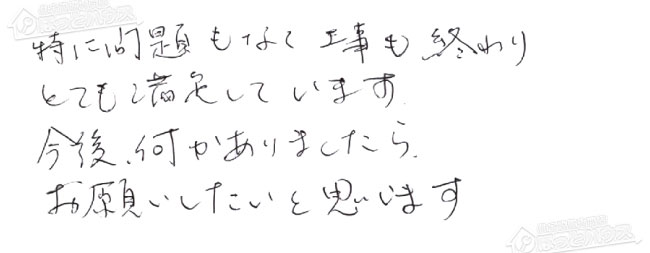 特に問題もなく工事も終わり
とても満足しています.
今後、何かありましたら、
お願いしたいと思います